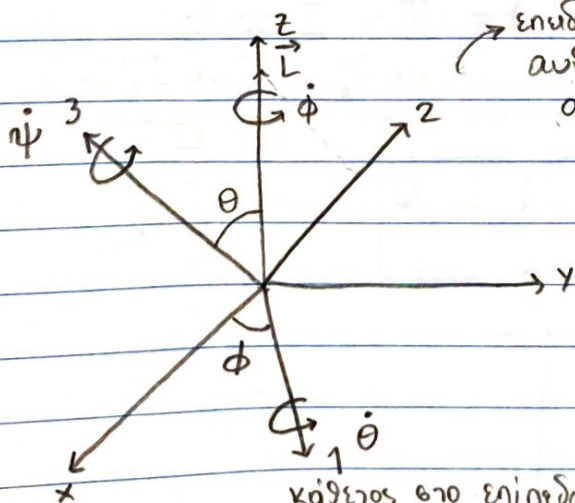 z
L⃗
επειδ
αυ
ο
φ̇
ψ̇
3
2
θ
y
φ
θ̇
1
x
κάθετος στο επίπεδο